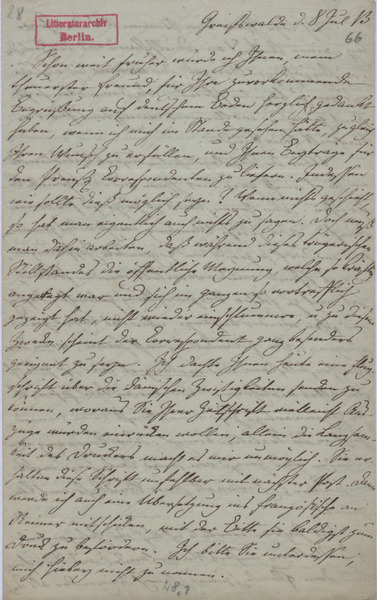 28
Litteraturarchiv
Berlin.
Greifswalde d. 8 Jul 13
66
Schon weit früher würde ich Ihnen, mein
theuerster Freund, für Ihre zuvorkommende
Begrüßung auf deutschem Boden herzlich gedankt
haben, wenn ich mich im Stande gesehen hätte, zugleich
Ihren Wunsch zu erfüllen, und Ihnen Beyträge für
den Preuß. Correspondenten zu liefern. Indessen
wie sollte dieß möglich seyn? Wenn nichts geschieht,
so hat man eigentlich auch nichts zu sagen. Doch muß
man dahin arbeiten, daß während dieses
Stillstandes die öffentliche Meynung, welche so kräftig
angeregt war und sich im ganzen so vortrefflich
gezeigt hat, nicht wieder einschlummre, u zu diesem
Zweck scheint der Correspondent ganz besonders
geeignet zu seyn. Ich dachte Ihnen heute eine Flug-
schrift über die dänischen Zwistigkeiten senden zu
können, woraus Sie Ihrer Zeitschrift vielleicht Aus-
züge würden einrücken wollen, allein die Langsam-
keit des Druckers macht es mir unmöglich. Sie er-
halten diese Schrift unfehlbar mit nächster Post. Dann
werde ich auch eine Übersetzung ins Französische an
Reimer mitschicken, mit der Bitte sie baldigst zum
Druck zu befördern. Ich bitte Sie unterdessen,
mich hiebey nicht zu nennen.
48,1